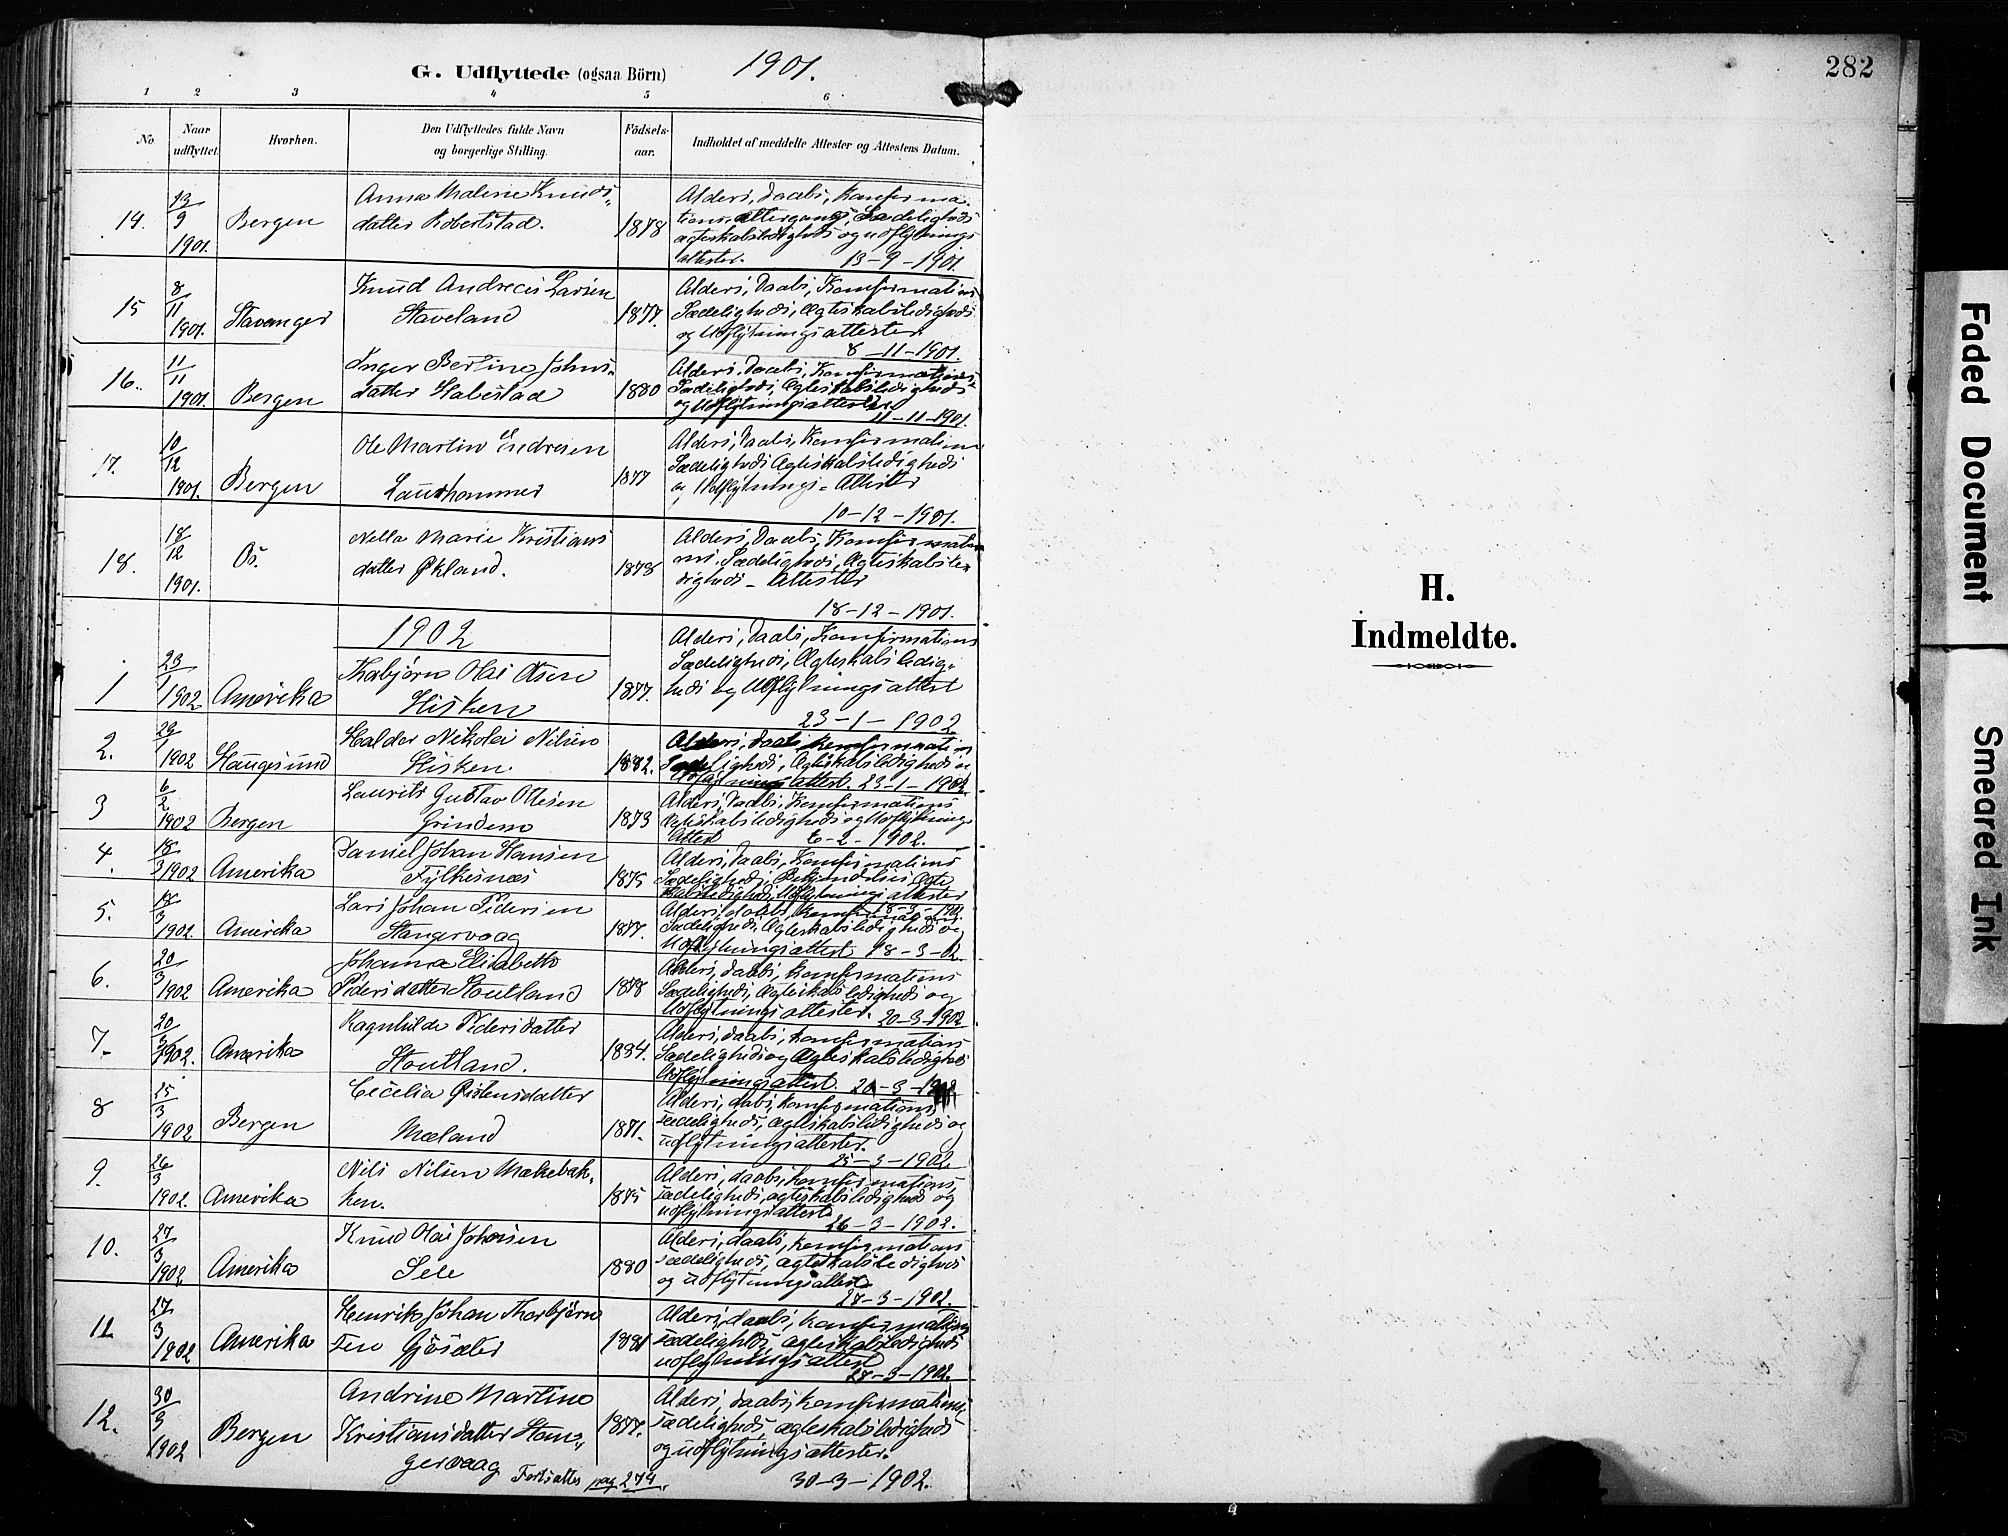 G. Udflyttede (ogsaa Börn) 1901.
1 2 3 4 5 6
No. Naar udflyttet. Hvorhen. Den Udflyttedes fulde Navn og borgerlige Stilling. Födsels-aar. Indholdet af meddelte Attester og Attestens Datum.
14. 13/9 1901. Bergen Anna Malene Knuds-
datter Robertstad. 1878 Alders, Daabs, Konfirma-
tions, altergangs, Sædeligheds
ægteskabsledigheds og udflytnings
attester. 13-9-1901.
15 8/11 1901. Stavanger Knud Andreas Larsen
Staveland 1877. Alders, Daabs, Konfirmations
Sædeligheds, Ægteskabsledigheds
og Udflytningsattester.
8-11-1901.
16. 11/11 1901. Bergen Inger Bertine Johns-
datter Habestad 1880 Alders, Daabs, Konfirmations-
Sædeligheds, Ægteskabsledigheds
og Udflytningsattester
11-11-1901.
17. 10/12 1901. Bergen Ole Martin Endresen
Laurhammer 1877 Alders, Daabs, Konfirmations
Sædeligheds Ægteskabsledigheds
og Udflytnings-Attester
10-12-1901.
18. 18/12 1901. Os. Nella Marie Kristians
datter Økland. 1878 Alders, Daabs, Konfirmatio
ns. Sædeligheds, Ægteskabsle-
digheds-Attester
18-12-1901.
1902
1 23/1 1902 Amerika Thorbjørn Olai Osen
Hisken 1877. Alders, Daabs, Konfirmations
Sædeligheds, Ægteskabsledig-
heds og Udflytningsattest
23-1-1902
2. 29/1 1902 Haugesund Haldor Nikolai Nilsen
Hisken. 1882. Alders, Daabs Konfirmations
Sædeligheds, Ægteskabsledigheds og
Udflytningsattest. 23-1-1902.
3 6/2 1902 Bergen Laurits Gustav Ottesen
Grindem 1873 Alders, Daabs, Konfirmations
Ægteskabsledigheds og Udflytnings-
Attest 6-2-1902.
4. 18/3 1902 Amerika Daniel Johan Hansen
Fylkesnæs 1875 Alders, Daabs, Konfirmations
Sædeligheds, Ægte
skabsledigheds, Udflytningsattester
18-3-1902
5. 18/3 1902 Amerika Lars Johan Pedersen
Stangervaag 1877. Alders, daabs, Konfirmations
Sædeligheds, Ægteskabsledigheds og
Udflytningsattest 18-3-02.
6. 20/3 1902 Amerika Johanna Elisabeth
Pedersdatter Stoutland 1878 Alders, Daabs, Konfirmations
Sædeligheds, Ægteskabsledigheds og
Udflytningsattester. 20-3-1902
7. 20/3 1902. Amerika Ragnhilde Pedersdatter
Stoutland. 1884. Alders, daabs, Konfirmations
Sædeligheds og Ægteskabsledigheds
Udflytningsattest. 20-3-1902
8 25/3 1902 Bergen Cecelia Østensdatter
Mæland 1871. Alders, daabs, konfirmations
sædeligheds, ægteskabsledigheds og
udflytningsattester.
25-3-1902.
9. 26/3 1902. Amerika Nils Nilsen Mækebak-
ken. 1875 Alders, daabs, konfirmations,
sædeligheds, ægteskabsledigheds og
udflytningsattest.
26-3-1902.
10. 27/3 1902 Amerika Knud Olai Johnsen
Sele 1880 Alders, daabs, konfirmations
sædeligheds, ægteskabsledigheds
og udflytningsattest.
27-3-1902.
11 27/3 1902 Amerika Henrik Johan Thorbjørn
sen Gjøsæter 1881 Alders, daabs, konfirmations
sædeligheds, ægteskabsledigheds
udflytningsattest
27-3-1902.
12. 30/3 1902 Bergen Andrine Martine
Kristiansdatter Stan-
gervaag 1877. Alders, daabs, konfirmations,
sædeligheds, ægteskabsledigheds
og udflytningsattester.
30-3-1902.
Fortsættes pag 274.
282
H.
Indmeldte.
Faded Document
Smeared Ink